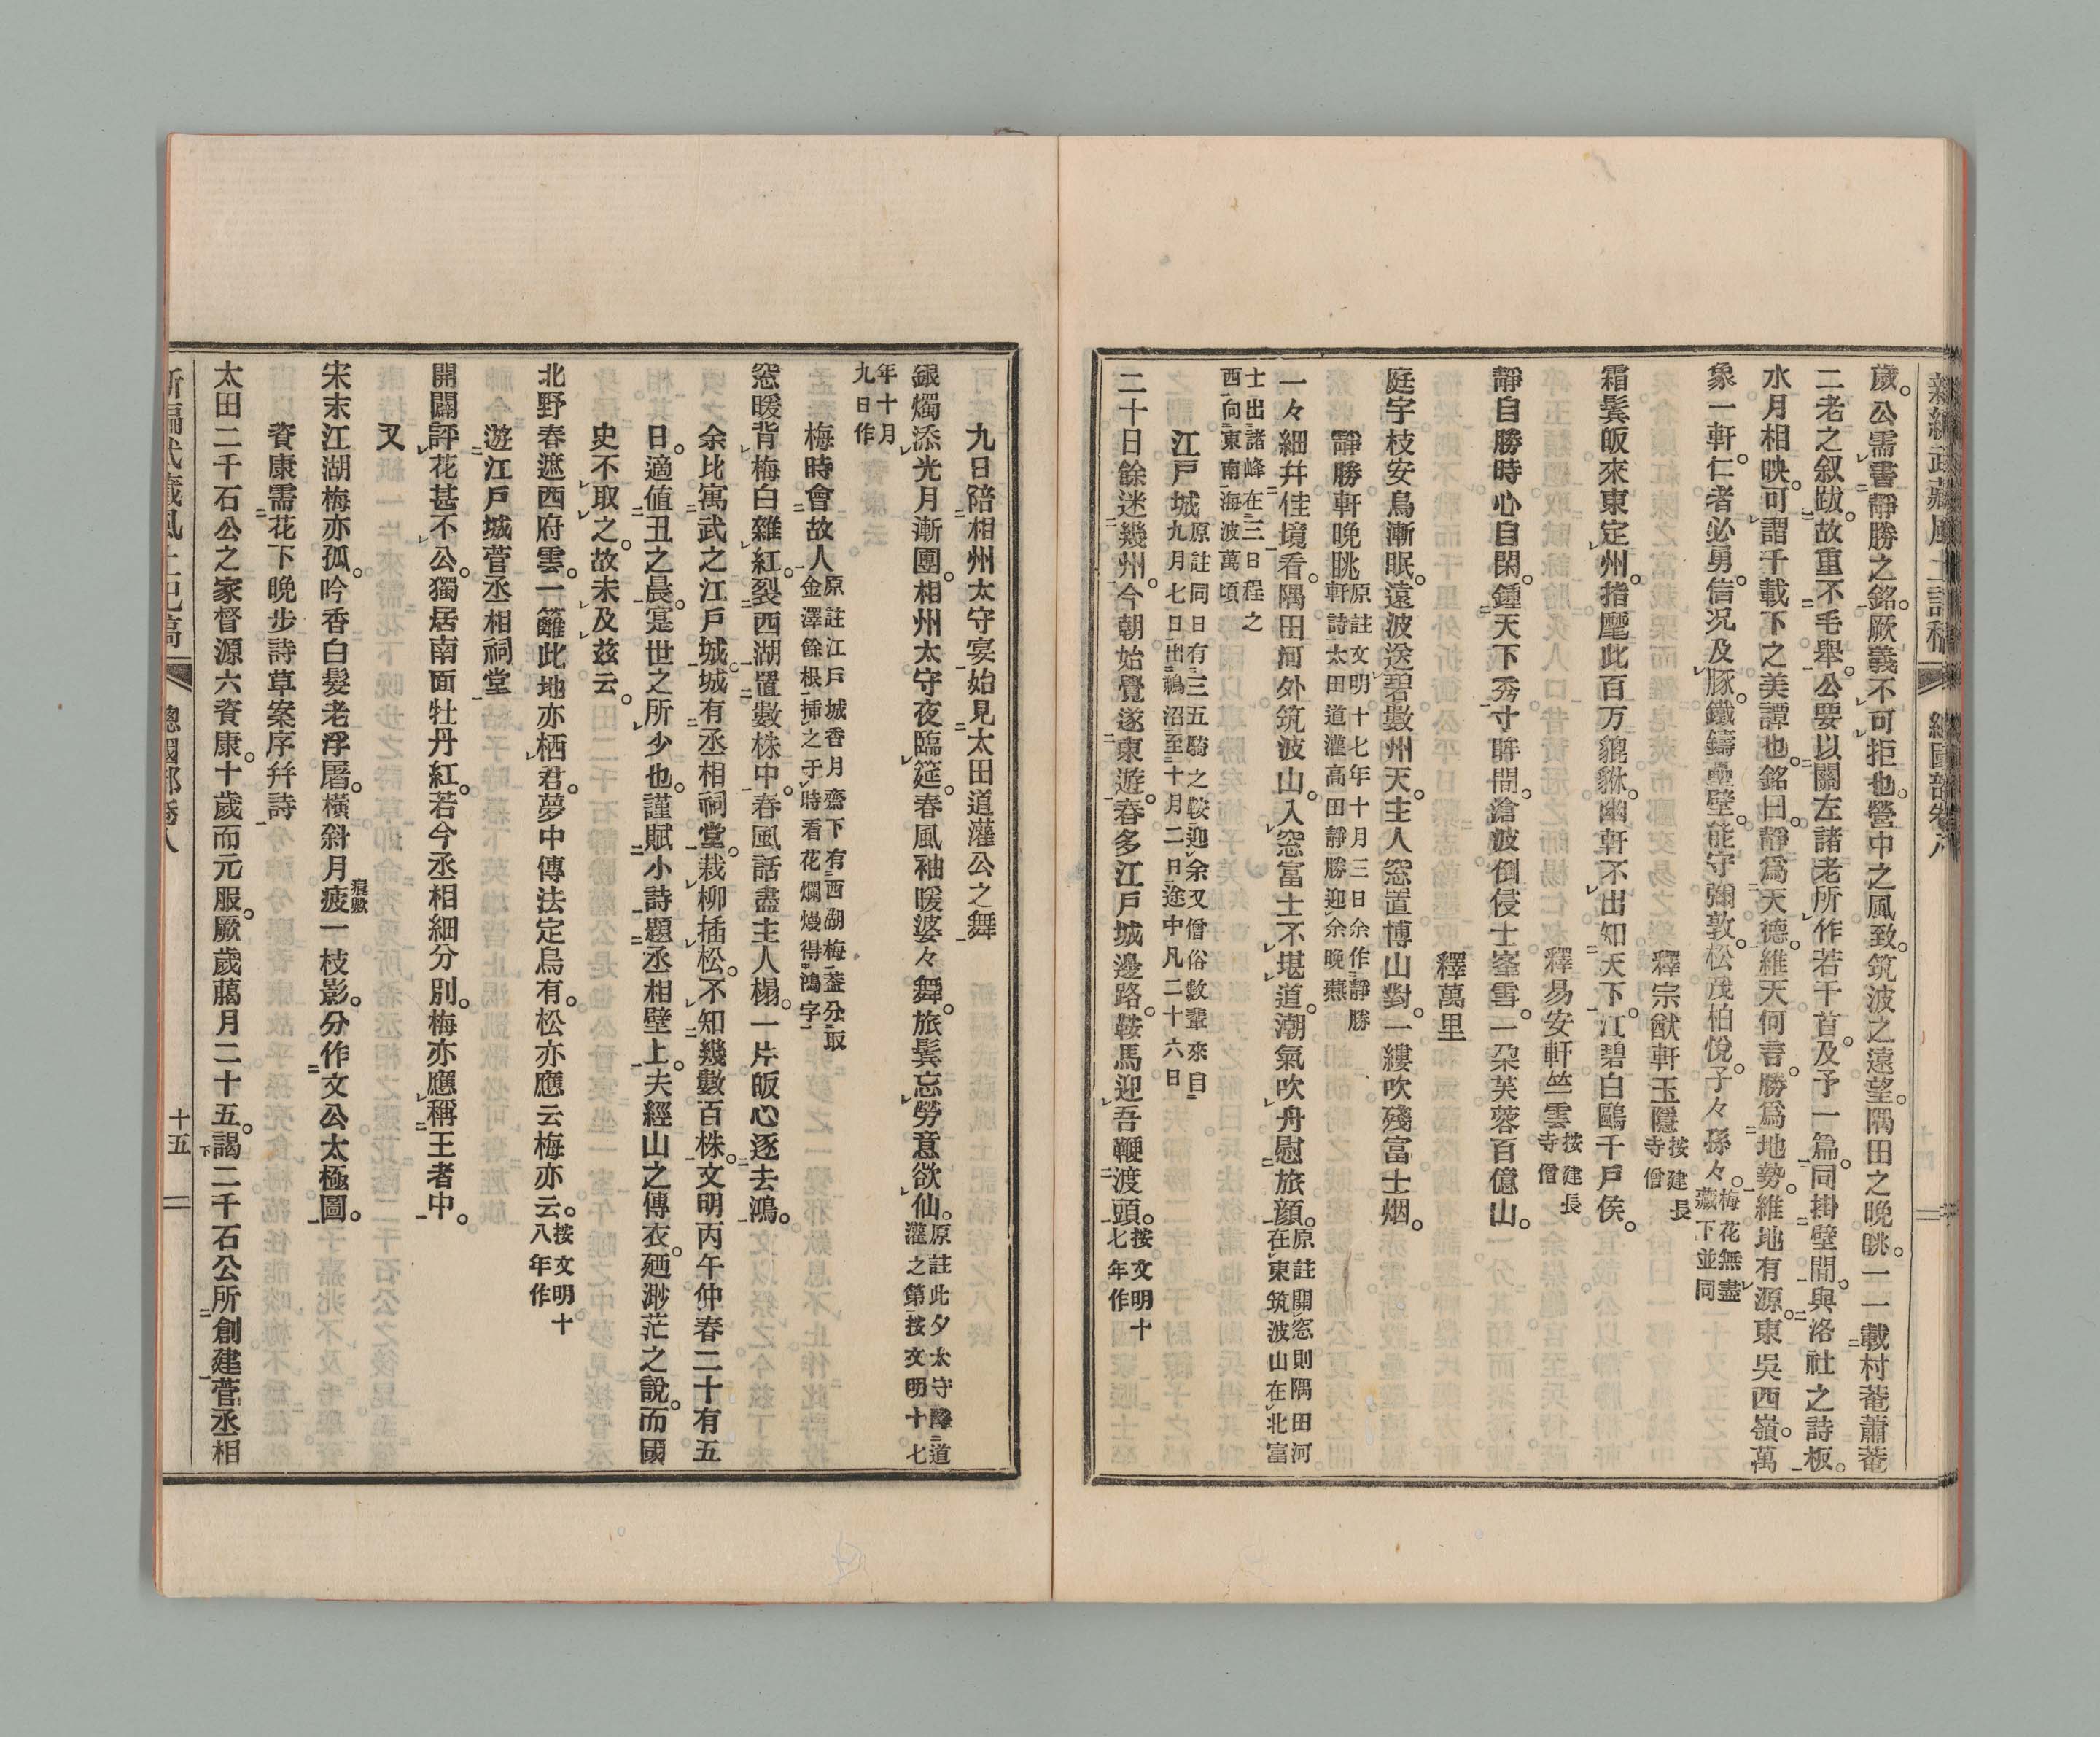 新編武藏風土記稿 總國部卷八
歲。公需書靜勝之銘。厥義不可拒也。營中之風致。筑波之遠望。隅田之晚眺。一一載村菴蕭菴
二老之叙跋。故重不毛舉。公要以關左諸老所作若干首。及予一篇。同掛壁間。與洛社之詩板。
水月相映。可謂千載下之美譚也。銘曰。靜爲天德。維天何言。勝爲地勢。維地有源。東吳西嶺。萬
象一軒。仁者必勇。信況及豚。鐵鑄疊壁。能守彌敦。松茂柏悅。子々孫々。梅花無盡
藏下並同
釋宗猷軒玉隱按建長
寺僧
霜鬂皈來東定州。指麾此百万貔貅。幽軒不出知天下。江碧白鷗千戶侯。
釋易安軒竺雲按建長
寺僧
靜自勝時心自閑。鍾天下秀寸眸間。滄波倒侵士峯雪。一朶芙蓉百億山。
釋萬里
庭宇枝安鳥漸眠。遠波送碧數州天。主人窓置博山對。一縷吹殘富士烟。
靜勝軒晚眺原註文明十七年十月三日余作靜勝
軒詩太田道灌高田靜勝迎余晚燕
一々細幷佳境看。隅田河外筑波山。入窓富士不堪道。潮氣吹舟慰旅顏。原註開窓則隅田河
在東筑波山在北富
士出諸峰在三日程之
西向東南海波萬頃
江戶城原註同日有三五騎之鞍迎余又僧俗數輩來自
九月七日出鵜沼至十月二日途中凡二十六日
二十日餘迷幾州。今朝始覺遂東遊。春多江戶城邊路。鞍馬迎吾鞭渡頭。按文明十
七年作
九日陪相州太守宴始見太田道灌公之舞
銀燭添光月漸團。相州太守夜臨筵。春風袖暖婆々舞。旅鬂忘勞意欲仙。原註此夕太守降道
灌之第按文明十七
年十月
九日作
梅時會故人原註江戶城香月齋下有西湖梅蓋分取
金澤餘根揷之于時看花爛熳得鴻字
窓暖背梅白雜紅。裂西湖置數株中。春風話盡主人榻。一片皈心逐去鴻。
余比寓武之江戶城。城有丞相祠堂。栽柳插松。不知幾數百株。文明丙午仲春二十有五
日。適値丑之晨。寔世之所少也。謹賦小詩題丞相壁上。夫經山之傳衣。廼渺茫之說。而國
史不取之。故未及茲云。
北野春遮西府雲。一籬此地亦栖君。夢中傳法定烏有。松亦應云梅亦云。按文明十
八年作
遊江戶城菅丞相祠堂
開闢評花甚不公。獨居南面牡丹紅。若今丞相細分別。梅亦應稱王者中。
又
宋末江湖梅亦孤。吟香白髮老浮屠。橫斜月疲痕歟一枝影。分作文公太極圖。
資康需花下晚步詩草案序幷詩
太田二千石公之家督源六資康。十歲而元服。厥歲臈月二十五。謁二千石公所創建菅丞相
新編武藏風土記稿 總國部卷八 十五